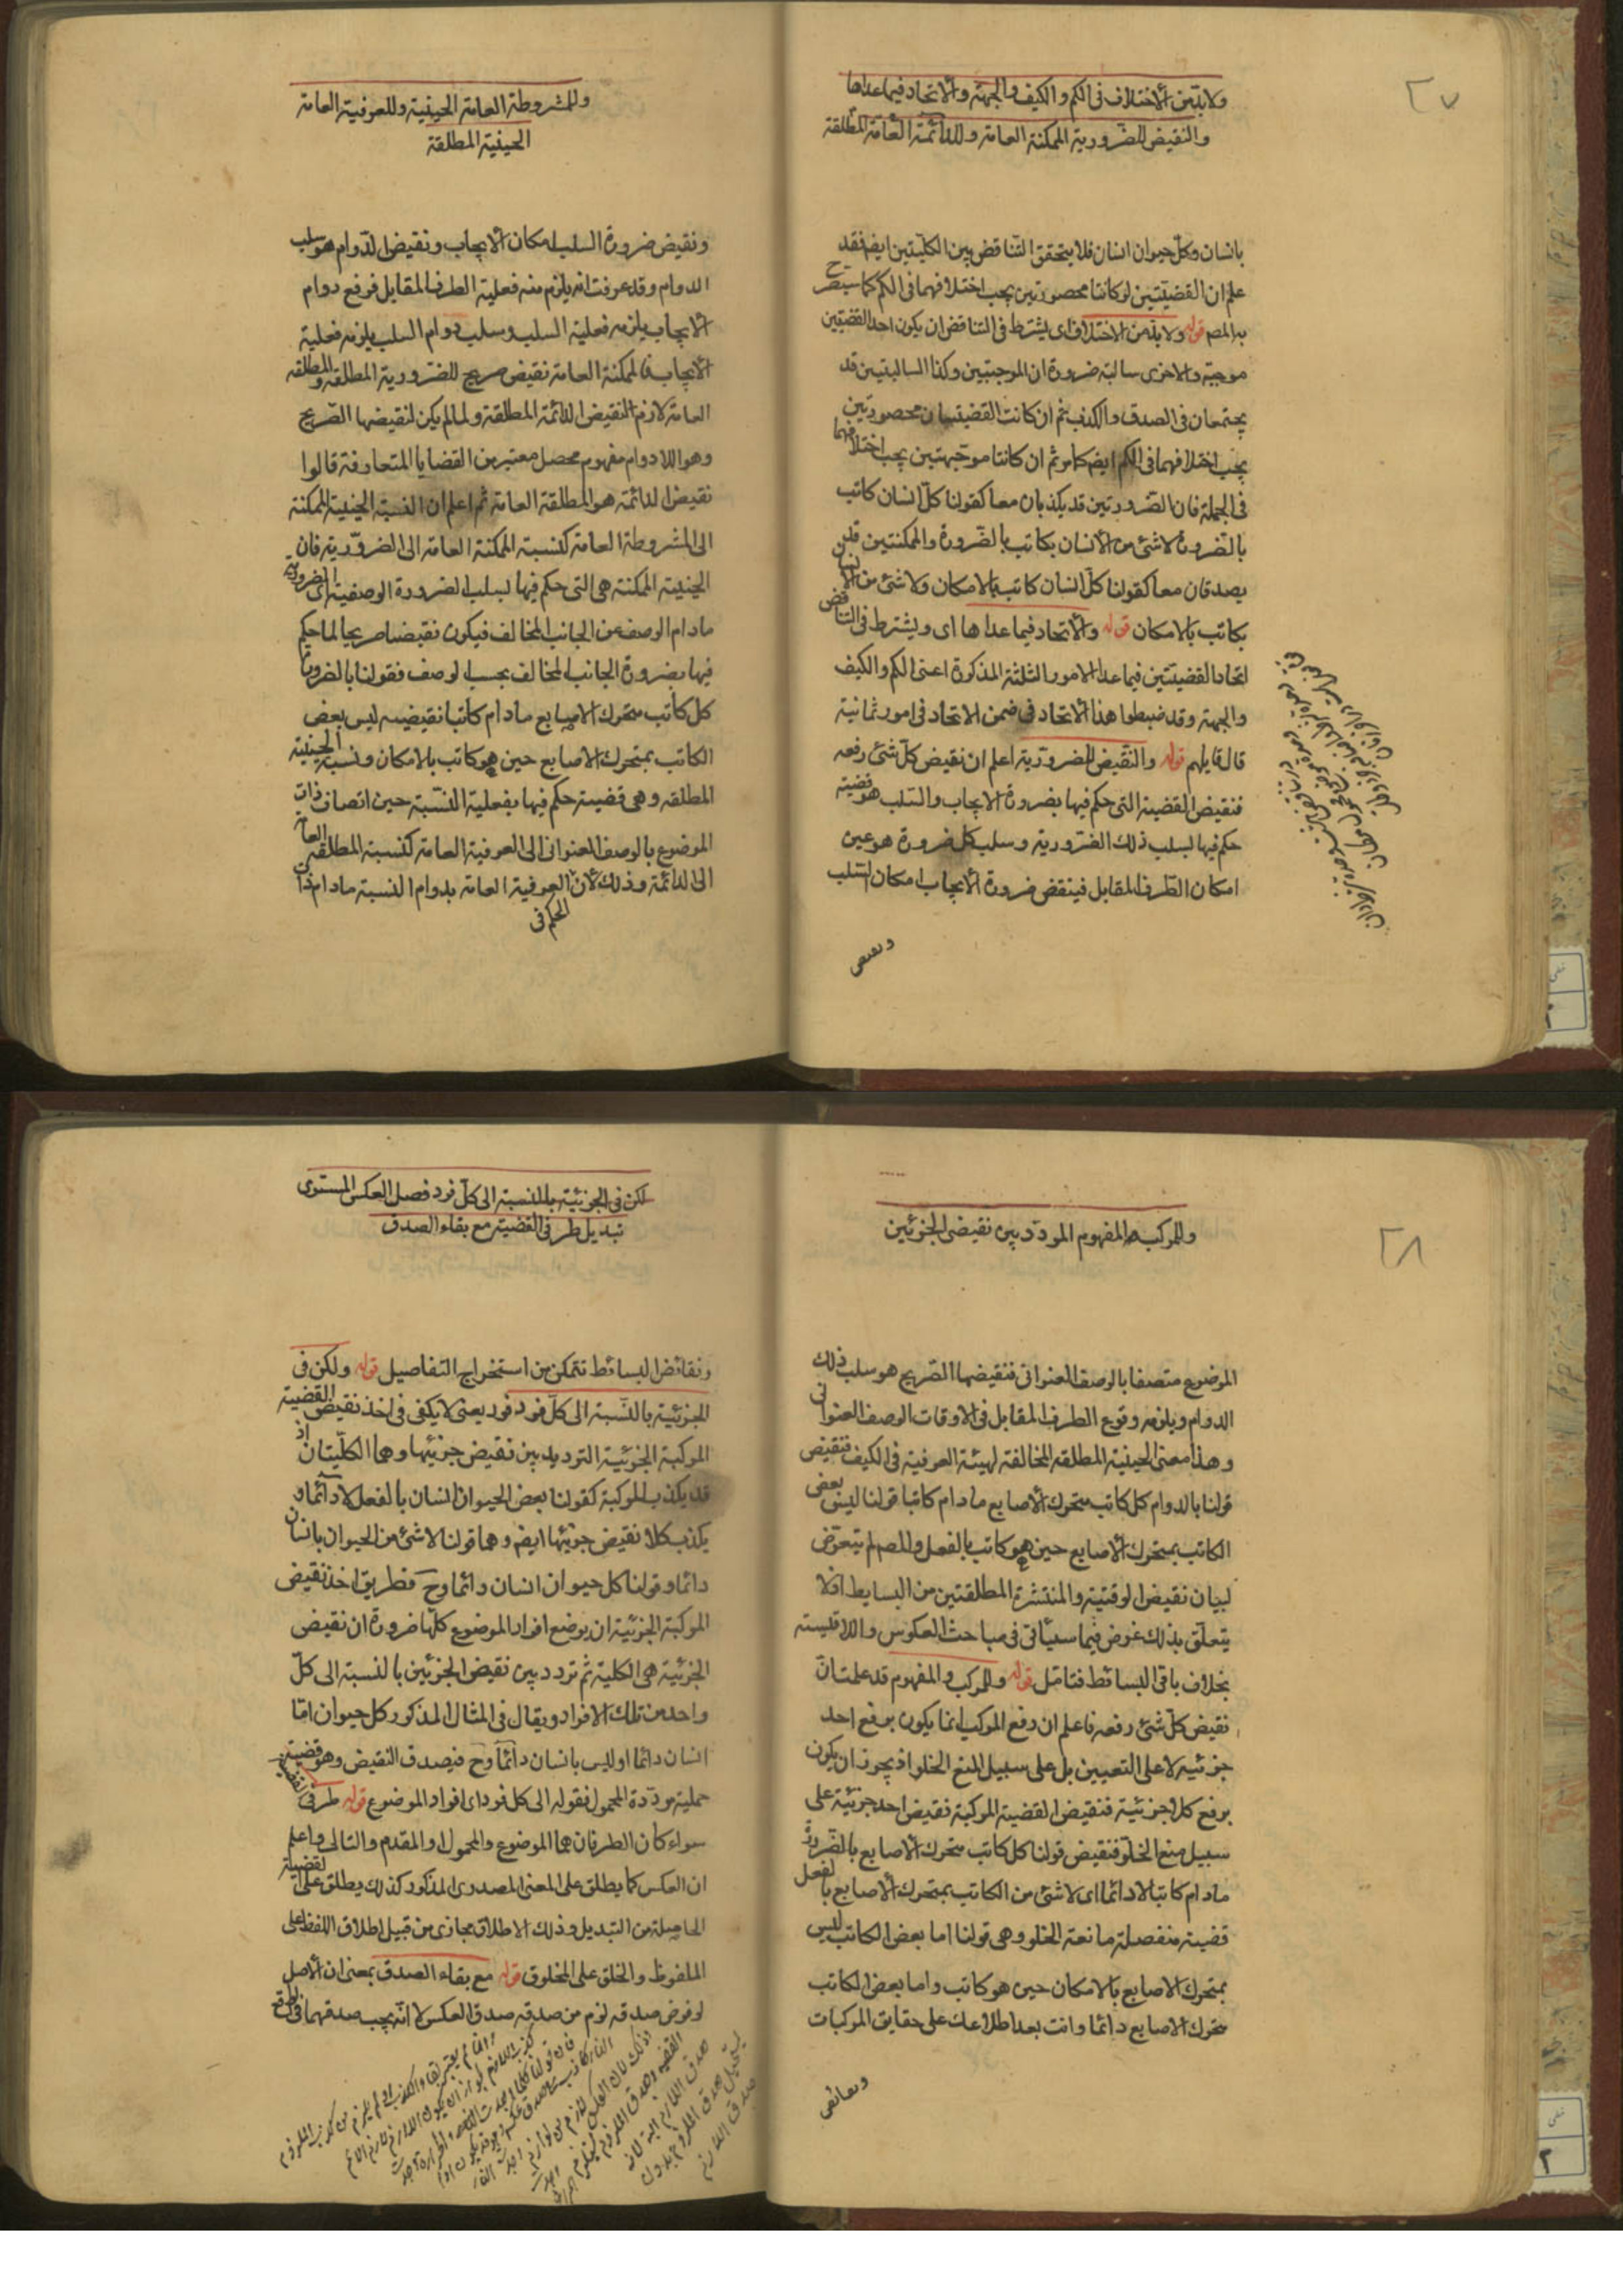 ٢٧
ولا بد من الاختلاف فى الكم والكيف والجهة والاتحاد فيما عداها
والنقيض للضرورية الممكنة العامة وللدائمة العامة المطلقة
بانسان وكل حيوان انسان فلا يتحقق التناقض بين الكليتين ايضا فقد
علم ان القضيتين لو كانتا محصورتين يجب اختلافهما فى الكم كما سيصرح
به المص قوله ولا بد من الاختلاف اى يشترط فى التناقض ان يكون احد القضيتين
موجبة والاخرى سالبة ضرورة ان الموجبتين وكذا السالبتين قد
يجتمعان فى الصدق والكذب ثم ان كانت القضيتان محصورتين
يجب اختلافهما فى الكم ايضا كما مر ثم ان كانتا موجهتين يجب اختلافهما
فى الجملة فان الضرورتين قد يكذبان معا كقولنا كل انسان كاتب
بالضرورة لا شئ من الانسان بكاتب بالضرورة والممكنتين قد
يصدقان معا كقولنا كل انسان كاتب بالامكان ولا شئ من الانسان
بكاتب بالامكان قوله والاتحاد فيما عداها اى ويشترط فى التناقض
اتحاد القضيتين فيما عدا الامور الثلثة المذكورة اعنى الكم والكيف
والجهة وقد ضبطوا هذا الاتحاد فى ضمن الاتحاد فى امور ثمانية
قال قايلهم قوله والنقيض للضرورية اعلم ان نقيض كل شئ رفعه
فنقيض القضية التى حكم فيها بضرورة الايجاب والسلب هو قضية
حكم فيها لسلب ذلك الضرورية وسلب كل ضرورة هو عين
امكان الطرف المقابل فينقض ضرورة الايجاب امكان السلب
ونقيض
وللمشروطة العامة الحينية وللعرفية العامة
الحينية المطلقة
ونقيض ضرورة السلب امكان الايجاب ونقيض الدوام هو سلب
الدوام وقد عرفت انه يلزم منه فعلية الطرف المقابل فرفع دوام
الايجاب يلزمه فعلية السلب وسلب دوام السلب يلزمه فعلية
الايجاب فالممكنة العامة نقيض صريح للضرورية المطلقة والمطلقة
العامة لازم النقيض الدائمة المطلقة ولما لم يكن لنقيضها الصريح
وهو اللادوام مفهوم محصل معتبر من القضايا المتعارفة قالوا
نقيض الدائمة هو المطلقة العامة ثم اعلم ان النسبة الحينية الممكنة
الى المشروطة العامة كنسبة الممكنة العامة الى الضرورية فان
الحينية الممكنة هى التى حكم فيها لسلب الضرورة الوصفية اى الضرورية
مادام الوصف عن الجانب المخالف فيكون نقيضا صريحا لما حكم
فيها بضرورة الجانب المخالف بحسب الوصف فقولنا بالضرورة
كل كاتب متحرك الاصابع مادام كاتبا نقيضه ليس بعض
الكاتب بمتحرك الاصابع حين هو كاتب بالامكان ونسبة الحينية
المطلقة وهى قضية حكم فيها بفعلية النسبة حين اتصاف ذات
الموضوع بالوصف العنوانى الى العرفية العامة كنسبة المطلقة العامة
الى الدائمة وذلك لان الحكم فى العرفية العامة بدوام النسبة مادام ذات
٢٨
وللمركب المفهوم المردد بين نقيضى الجزئين
الموضوع متصفا بالوصف العنوانى فنقيضها الصريح هو سلب ذلك
الدوام ويلزمه وقوع الطرف المقابل فى الاوقات الوصف العنوانى
وهذا معنى الحينية المطلقة المخالفة لهيئة العرفية فى الكيف فنقيض
قولنا بالدوام كل كاتب متحرك الاصابع مادام كاتبا قولنا ليس بعض
الكاتب بمتحرك الاصابع حين هو كاتب بالفعل والمص لم يتعرض
لبيان نقيض الوقتية والمنتشرة المطلقتين من البسايط اذ لا
يتعلق بذلك غرض فيما سيأتى فى مباحث العكوس والاقيسة
بخلاف باقى البسائط فتامل قوله وللمركب والمفهوم قد علمت ان
نقيض كل شئ رفعه فاعلم ان رفع المركب انما يكون برفع احد
جزئيه لا على التعيين بل على سبيل المنع الخلو اذ يجوز ان يكون
برفع كلا جزئيه فنقيض القضية المركبة نقيض احد جزئيه على
سبيل منع الخلو فنقيض قولنا كل كاتب متحرك الاصابع بالضرورة
مادام كاتبا لا دائما اى لا شئ من الكاتب بمتحرك الاصابع بالفعل
قضية منفصلة مانعة الخلو وهى قولنا اما بعض الكاتب ليس
بمتحرك الاصابع بالامكان حين هو كاتب واما بعض الكاتب
متحرك الاصابع دائما وانت بعد اطلاعك على حقايق المركبات
ونقائض
لكن فى الجزئية بالنسبة الى كل فرد فصل العكس المستوى
تبديل طرفى القضية مع بقاء الصدق
ونقائض البسائط تتمكن من استخراج التفاصيل قوله ولكن فى
الجزئية بالنسبة الى كل فرد فرد يعنى لا يكفى فى اخذ نقيض القضية
المركبة الجزئية الترديد بين نقيض جزئيها وهما الكليتان اذ
قد يكذب المركبة كقولنا بعض الحيوان انسان بالفعل لا دائما و
يكذب كلا نقيض جزئيها ايضا وهما قولنا لا شئ من الحيوان بانسان
دائما وقولنا كل حيوان انسان دائما وح فطريق اخذ نقيض
المركبة الجزئية ان يوضع افراد الموضوع كلها ضرورة ان نقيض
الجزئية هى الكلية ثم تردد بين نقيض الجزئين بالنسبة الى كل
واحد من تلك الافراد ويقال فى المثال المذكور كل حيوان اما
انسان دائما او ليس بانسان دائما وح فيصدق النقيض وهو قضية
حملية مرددة المحمول فقوله الى كل فرد اى افراد الموضوع قوله طرفى القضية
سواء كان الطرفان هما الموضوع والمحمول او المقدم والتالى واعلم
ان العكس كما يطلق على المعنى المصدرى المذكور كذلك يطلق على القضية
الحاصلة من التبديل وذلك الاطلاق مجازى من قبيل اطلاق اللفظ على
الملفوظ والخلق على المخلوق قوله مع بقاء الصدق بمعنى ان الاصل
لو فرض صدقه لزم من صدقه صدق العكس لا انه يجب صدقهما فى الواقع